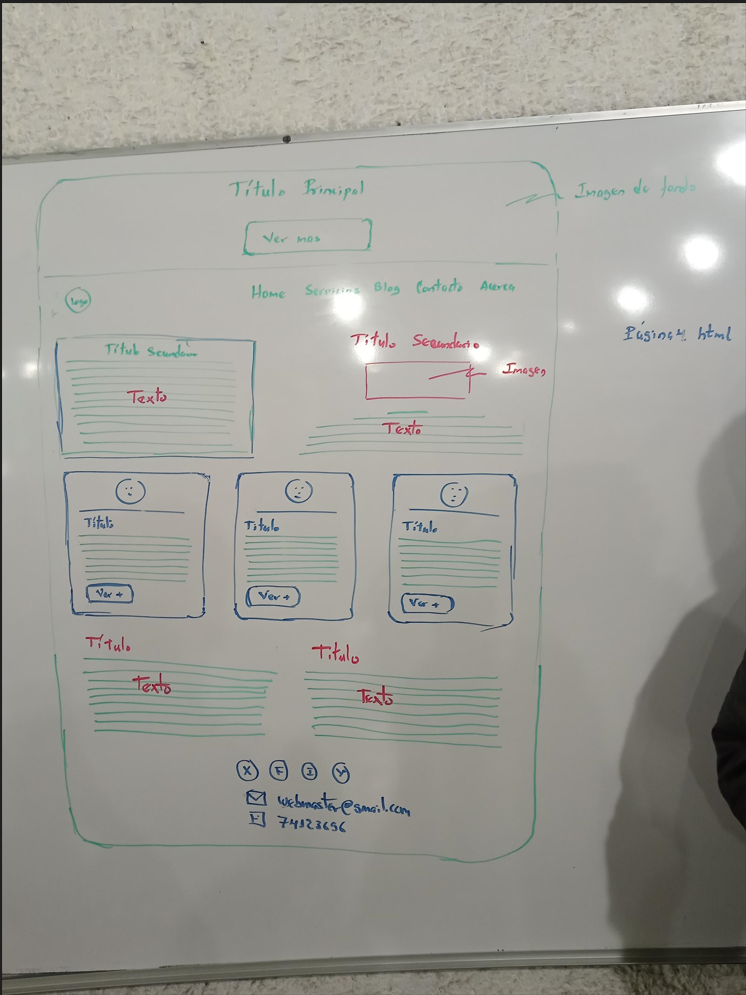 Título Principal
Imagen de fondo
Ver mas
logo
Home Servicios Blog Contacto Acerca
Página4 html
Título Secundario
Texto
Título Secundario
Imagen
Texto
Título
Ver +
Título
Ver +
Título
Ver +
Título
Texto
Título
Texto
X F I Y
webmaster@gmail.com
74123696